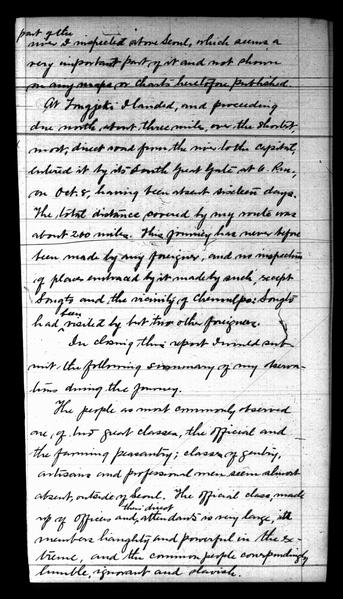 part of the
river I inspected above Seoul, which seems a
very important part of it and not shown
on any maps or charts heretofore published.
At I landed, and proceeding
due north, about three miles, over the shortest,
most direct road from the river to the capital,
entered it by its South Great Gate at 6. P.M.,
on Oct. 8, having been absent sixteen days.
The total distance covered by my route was
about 200 miles. This journey has never before
been made by any foreigner, and no inspection
of places embraced by it made by such, except
and the vicinity of Chemulpo:
been
had visited by but two other foreigners.
In closing this report I would sub-
mit the following summary of my observa-
tions during the journey.
The people as most commonly observed
are, of two great classes, the official and
the farming peasantry; classes of gentry,
artisans and professional men seem almost
absent, outside of Seoul. The official class, made
their direct
up of officers and attendants is very large, its
members haughty and powerful in the ex-
treme, and the common people correspondingly
humble, ignorant and slavish.